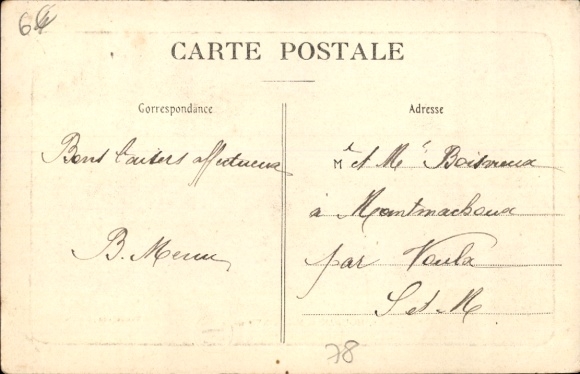 64
CARTE POSTALE
Correspondance
Adresse
Bons baisers affectueux
B. Menu
Mr et Me Boisreux
à Montmachoux
par Voulx
S et M
78